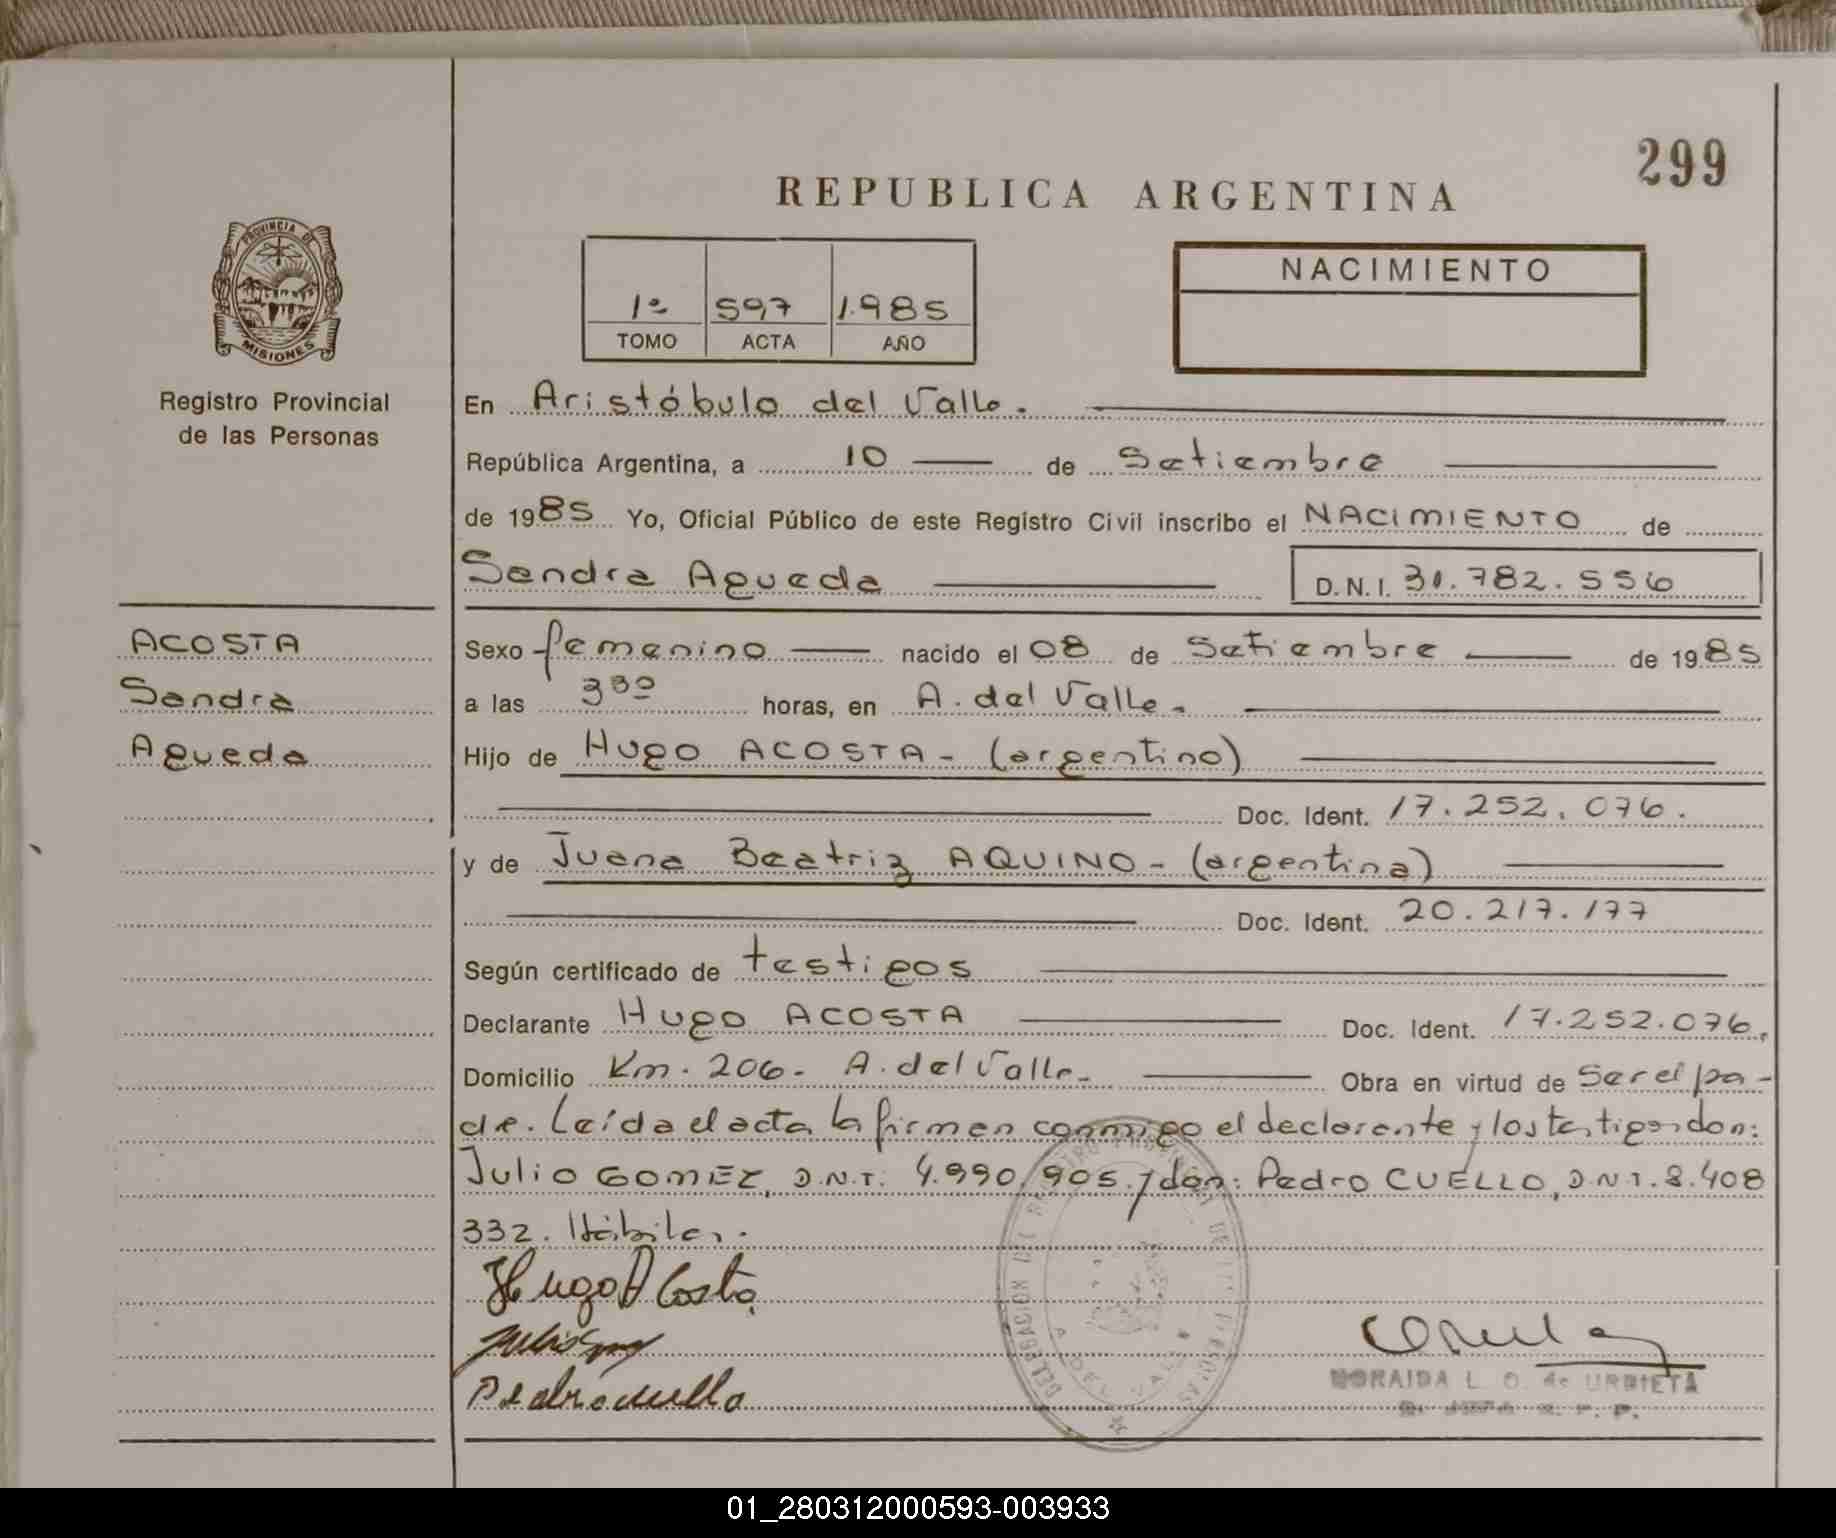 299
REPUBLICA ARGENTINA
PROVINCIA DE
MISIONES
Registro Provincial
de las Personas
1º 597 1.985
TOMO ACTA AÑO
NACIMIENTO
En Aristóbulo del Valle.
República Argentina, a 10 de Setiembre
de 1985 Yo, Oficial Público de este Registro Civil inscribo el NACIMIENTO de
Sandra Agueda D.N.I. 31.782.556
ACOSTA
Sandra
Agueda
Sexo femenino nacido el 08 de Setiembre de 1985
a las 3³⁰ horas, en A. del Valle.
Hijo de Hugo ACOSTA - (argentino)
Doc. Ident. 17.252.076.
y de Juana Beatriz AQUINO - (argentina)
Doc. Ident. 20.217.177
Según certificado de testigos
Declarante Hugo ACOSTA Doc. Ident. 17.252.076.
Domicilio Km. 206. A. del Valle. Obra en virtud de Ser el pa-
dre. Leída el acta la firman conmigo el declarante y los testigos don:
Julio GOMEZ, D.N.I. 4.990.905. y don: Pedro CUELLO, D.N.I. 8.408
332. Hábiles.
Hugo Acosta
Pedro cuello
DELEGACION DEL REGISTRO PROVINCIAL DE LAS PERSONAS
A. DEL VALLE
NORAIDA L. O. de URBIETA
01_280312000593-003933